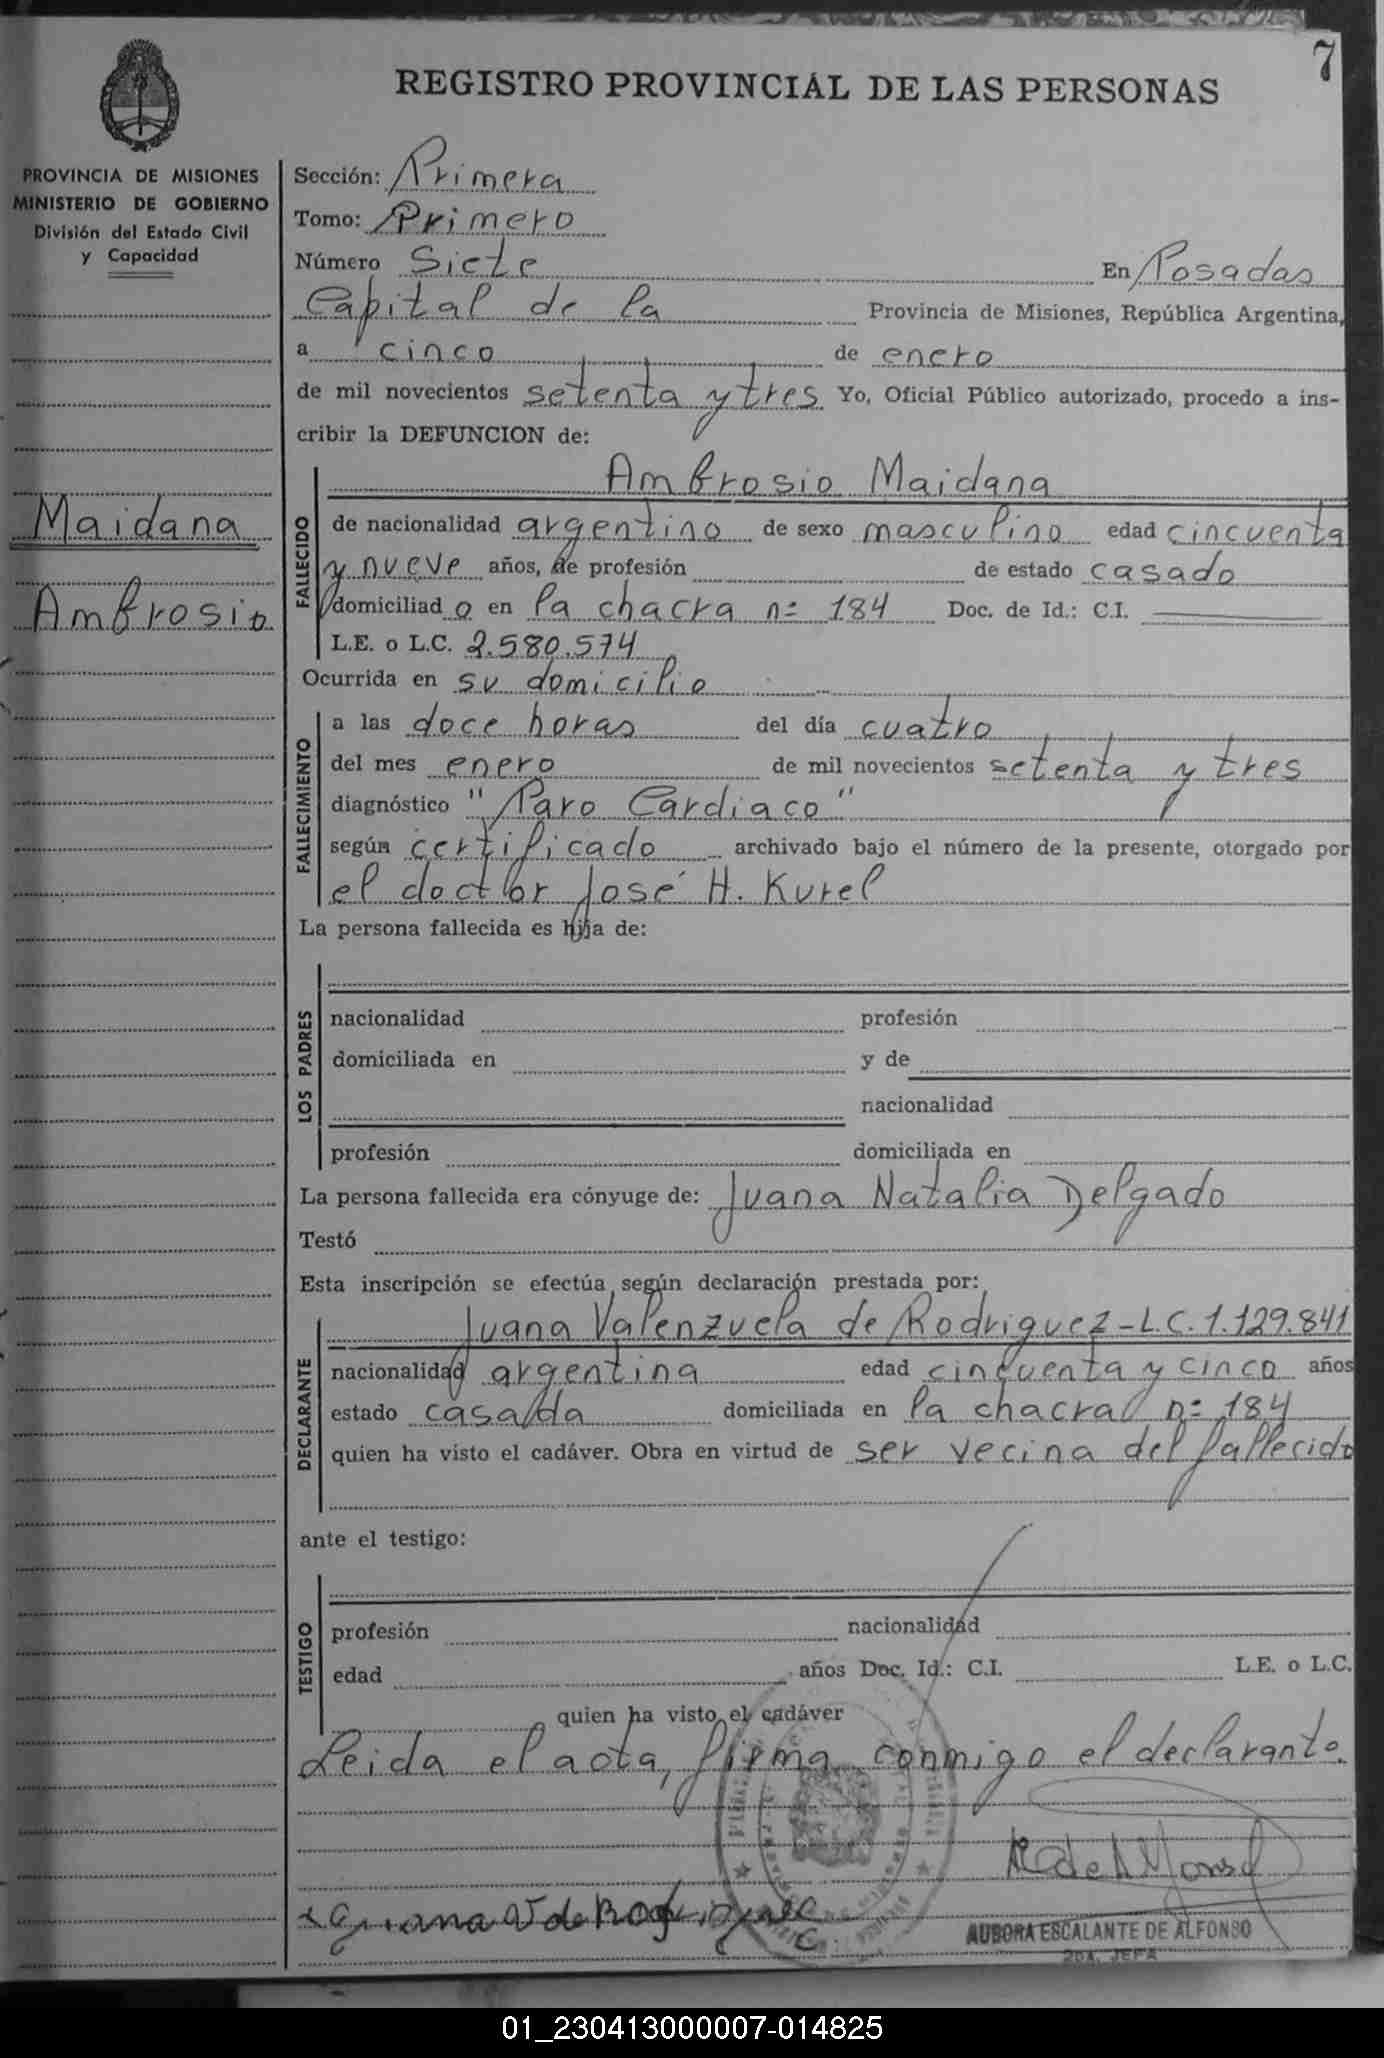 7
REGISTRO PROVINCIAL DE LAS PERSONAS
PROVINCIA DE MISIONES
MINISTERIO DE GOBIERNO
División del Estado Civil
y Capacidad
Maidana
Ambrosio
Sección: Primera
Tomo: Primero
Número Siete En Posadas
Capital de la Provincia de Misiones, República Argentina,
a cinco de enero
de mil novecientos setenta y tres Yo, Oficial Público autorizado, procedo a ins-
cribir la DEFUNCION de:
FALLECIDO
Ambrosio Maidana
de nacionalidad argentino de sexo masculino edad cincuenta
y nueve años, de profesión de estado casado
domiciliado en la chacra n= 184 Doc. de Id.: C.I.
L.E. o L.C. 2.580.574
Ocurrida en su domicilio
FALLECIMIENTO
a las doce horas del día cuatro
del mes enero de mil novecientos setenta y tres
diagnóstico "Paro Cardiaco"
según certificado archivado bajo el número de la presente, otorgado por
el doctor José H. Kurel
La persona fallecida es hija de:
LOS PADRES
nacionalidad profesión
domiciliada en y de
nacionalidad
profesión domiciliada en
La persona fallecida era cónyuge de: Juana Natalia Delgado
Testó
Esta inscripción se efectúa según declaración prestada por:
DECLARANTE
Juana Valenzuela de Rodriguez - L.C. 1.129.841
nacionalidad argentina edad cincuenta y cinco años
estado casada domiciliada en la chacra n= 184
quien ha visto el cadáver. Obra en virtud de ser vecina del fallecido
ante el testigo:
TESTIGO
profesión nacionalidad
edad años Doc. Id.: C.I. L.E. o L.C.
quien ha visto el cadáver
Leida el acta, firma conmigo el declarante.
Juana V de Rodriguez
AURORA ESCALANTE DE ALFONSO
2DA. JEFA
01_230413000007-014825